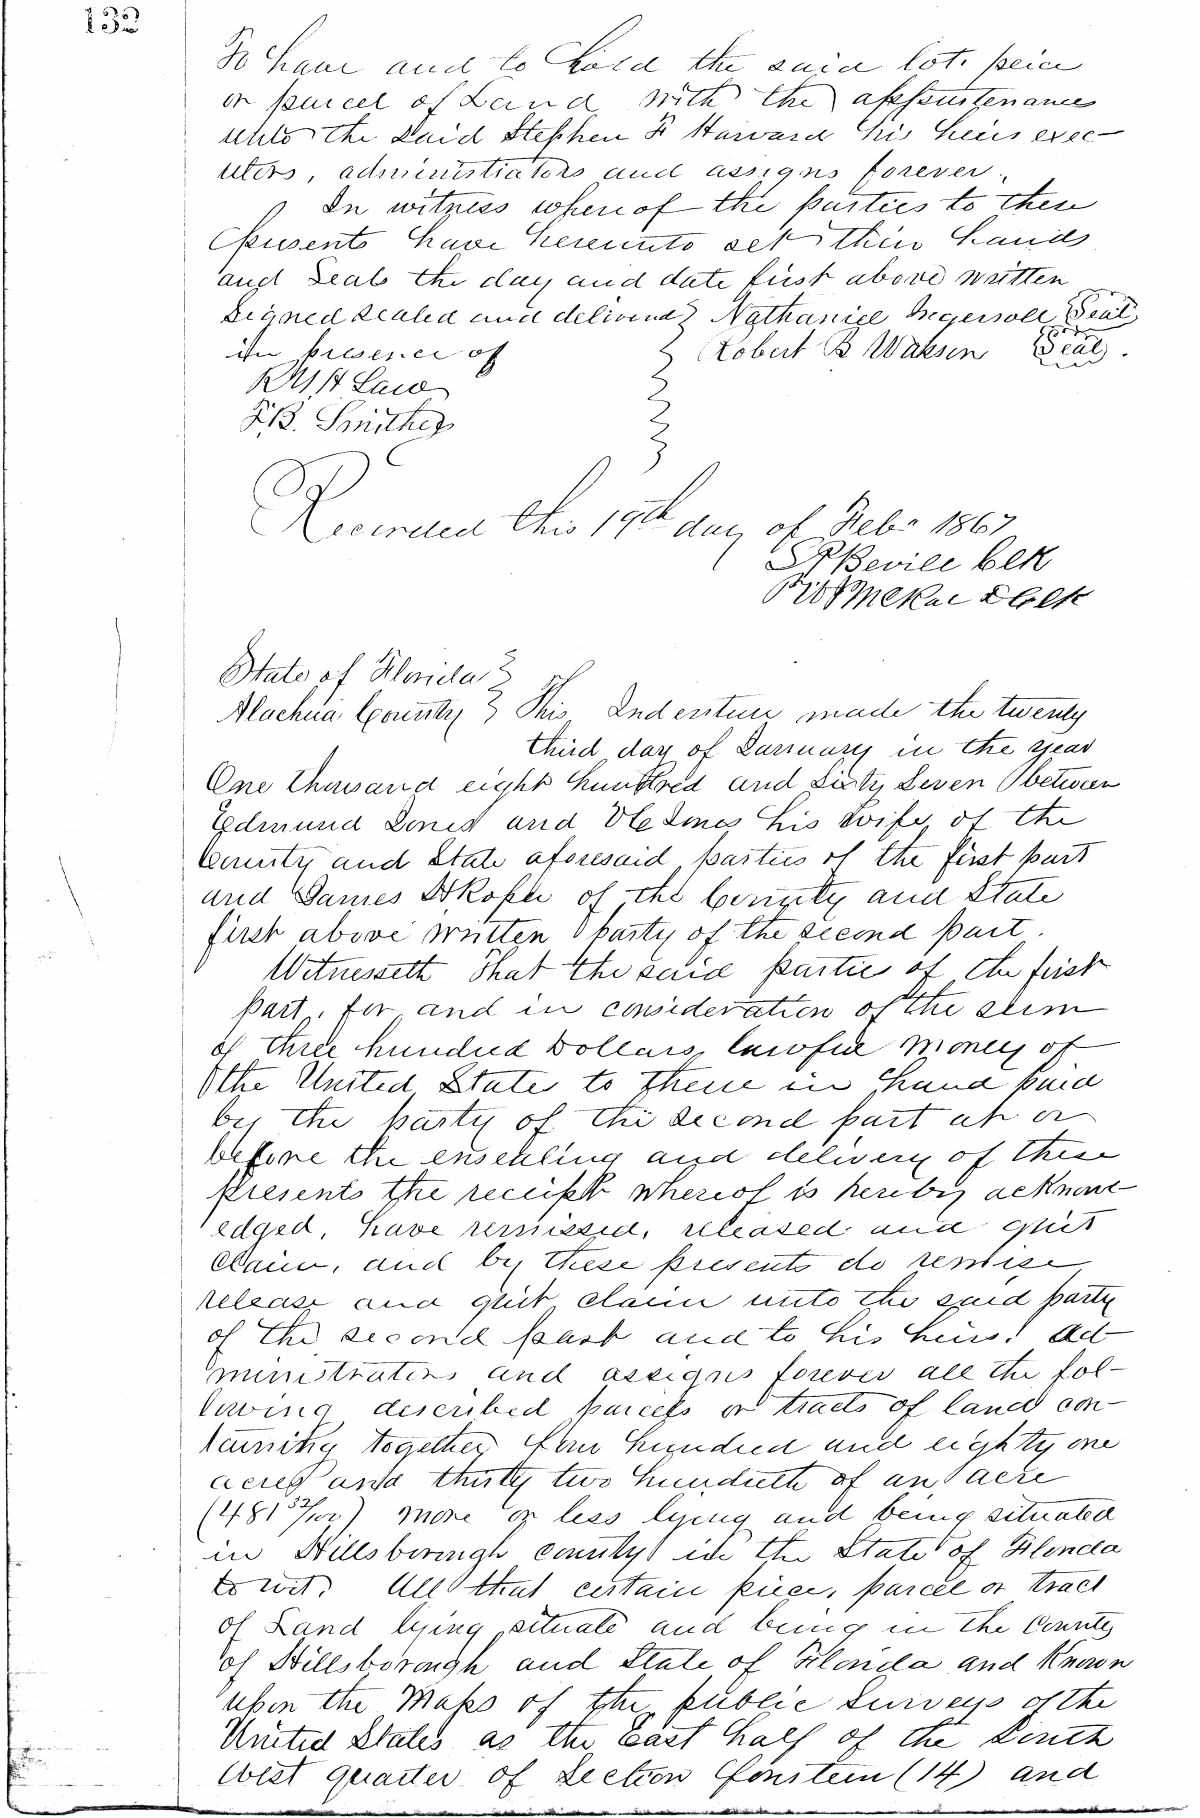 132
To have and to hold the said lot. peice
or parcel of Land with the appurtenances
unto the said Stephen F Harvard his heirs exec-
utors, administrators and assigns forever.
In witness whereof the parties to these
presents have hereunto set their hands
and Seals the day and date first above written
Signed sealed and delivered Nathaniel Ingersoll Seal
in presence of Robert B Watson Seal.
Law
F.B. Smithey
Recorded this 19th day of Feby 1867
Beville Clk
McKae D Clk
State of Florida
Alachua County This Indenture made the twenty
third day of January in the year
One thousand eight hundred and Sixty Seven between
Edmund Jones and his wife of the
County and State aforesaid parties of the first part
and James of the County and State
first above written party of the second part.
Witnesseth That the said parties of the first
part, for and in consideration of the sum
of three hundred Dollars, lawful money of
the United States to them in hand paid
by the party of the second part at or
before the ensealing and delivery of these
presents the receipt whereof is hereby acknowl
edged, have remissed, released and quit
claim, and by these presents do remise
release and quit claim unto the said party
of the second part and to his heirs. Ad-
ministrators and assigns forever all the fol-
lowing described parcels or tracts of land con-
taining together four hundred and eighty one
acres and thirty two hundreth of an acre
(481 32/100) more or less lying and being situated
in Hillsborough county in the State of Florida
to wit: All that certain piece, parcel or tract
of Land lying situate and being in the County
of Hillsborough and State of Florida and Known
upon the Maps of the public Surveys of the
United States as the East half of the South
West quarter of Section fourteen (14) and